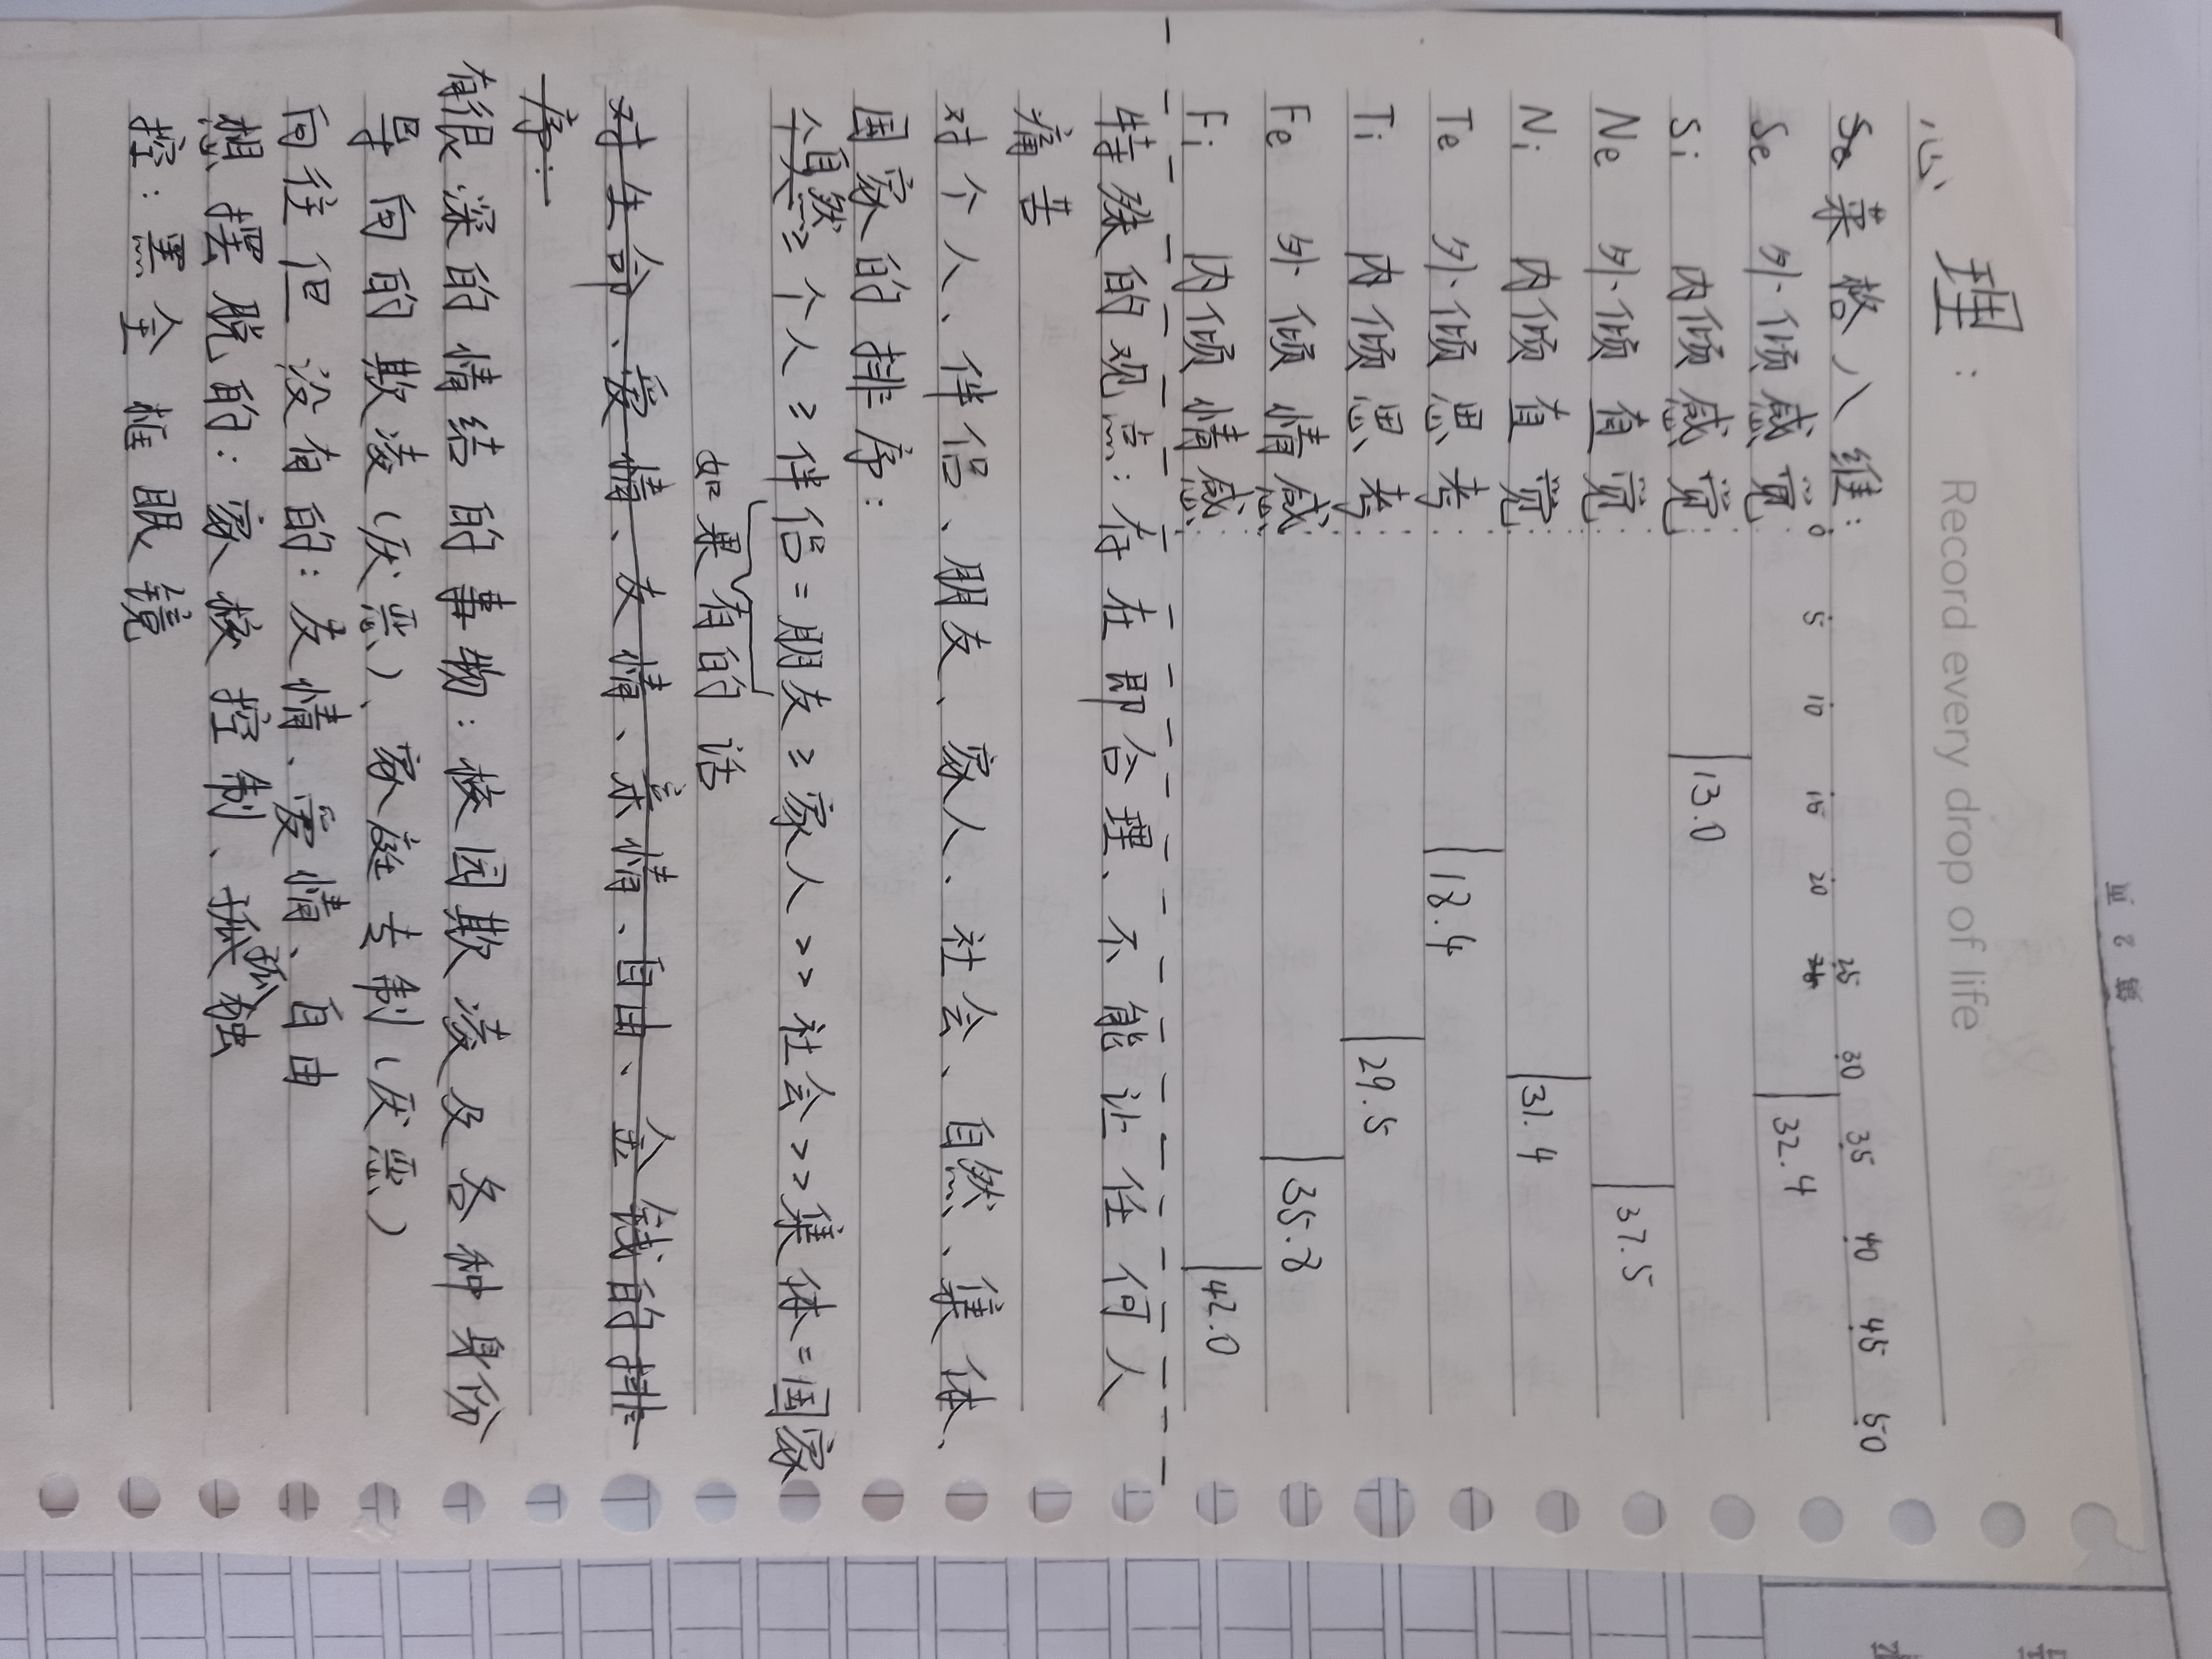 Record every drop of life
心理:
荣格八维:
0 5 10 15 20 25 30 35 40 45 50
Se 外倾感觉: 32.4
Si 内倾感觉: 13.0
Ne 外倾直觉: 37.5
Ni 内倾直觉: 31.4
Te 外倾思考: 18.4
Ti 内倾思考: 29.5
Fe 外倾情感: 35.8
Fi 内倾情感: 42.0
特殊的观点:存在即合理、不能让任何人
痛苦
对个人、伴侣、朋友、家人、社会、自然、集体、
国家的排序:
自然≥个人≥伴侣=朋友≥家人>>社会>>集体=国家
如果有的话
对生命、爱情、友情、亲情、自由、金钱的排
序:
有很深的情结的事物:校园欺凌及各种身份
导向的欺凌(厌恶)、家庭专制(厌恶)
向往但没有的:友情、爱情、自由
想摆脱的:家校控制、孤独
控:黑全框眼镜
第 2 页